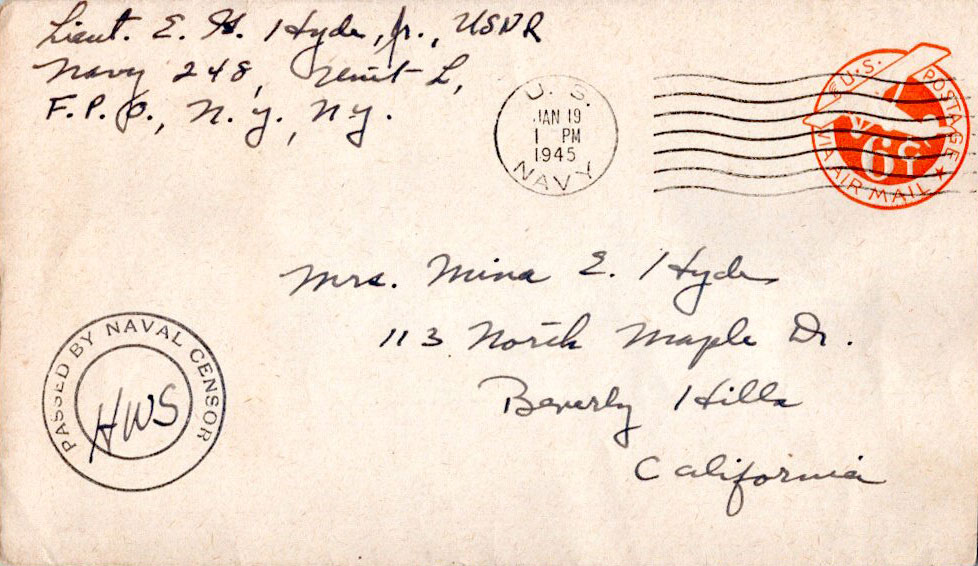 Lieut. E. H. Hyde, Jr., USNR
Navy 248, Unit L,
F.P.O., N.Y., N.Y.
U.S.
JAN 19
1 PM
1945
NAVY
U.S. POSTAGE
6¢
VIA AIR MAIL
Mrs. Mina E. Hyde
113 North Maple Dr.
Beverly Hills
California
PASSED BY NAVAL CENSOR
HWS